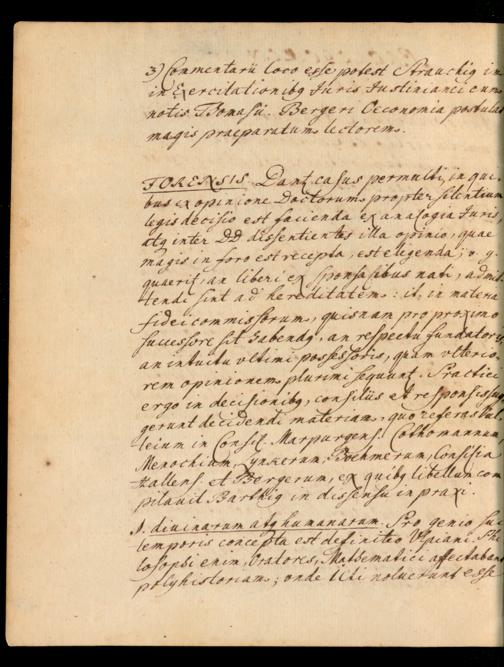 3) Commentarii loco esse potest Strauchig in
in Exercitationibg Juris Justinianei cum
notis Tomasii. Bergeri Oeconomia postulat
magis praeparatum lectorem.
FORENSIS. Dant. casus permulti, in qui-
bus ex opinione Doctorum propter silentium
legis decisio est facienda ex analogia Juris
atq inter DD dissentientes illa opinio, quae
magis in foro est recepta, est eligenda, v. g.
quaerit, an liberi ex sponsalibus nati, admit-
tendi sint ad hereditatem: it, in materia
fidei commissorum, quisnam pro proximo
successore sit habendg, an respectu fundatoris
an intuitu ultimi possessoris, quam ulterio-
rem opinionem plurimi sequunt. Practici
ergo in decisionibg, consiliis et responsis sug
gerunt decidendi materiam, quo referas Vul-
teium in Consil. Marpurgens. Cothomannum
Menochium, Zynkerum, Boehmerum, Consilia
Hallens. et Bergerum, ex quibg libellum com
pilavit Barthig in dissensu in praxi.
divinarum atq humanarum. Pro genio sui
temporis concepta est definitio Ulpiani. Phi
losophi enim, Oratores, Mathematici affectabant
polyhistoriam; unde ICti noluerunt esse